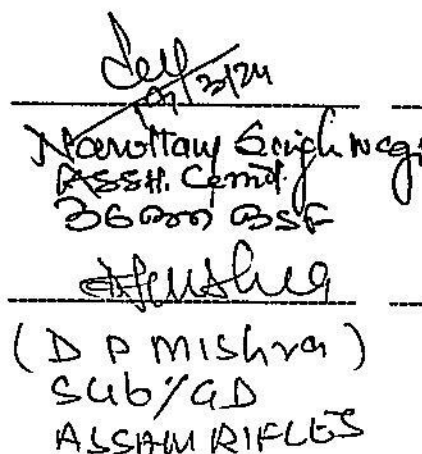 Narottam Singh Negi
Asstt. Comdt.
36 Bn BSF
(D P Mishra)
Sub/GD
ASSAM RIFLES